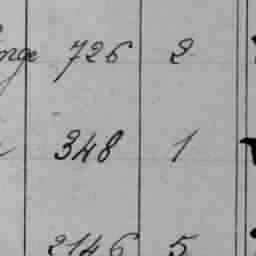 726 2
348 1
2146 5